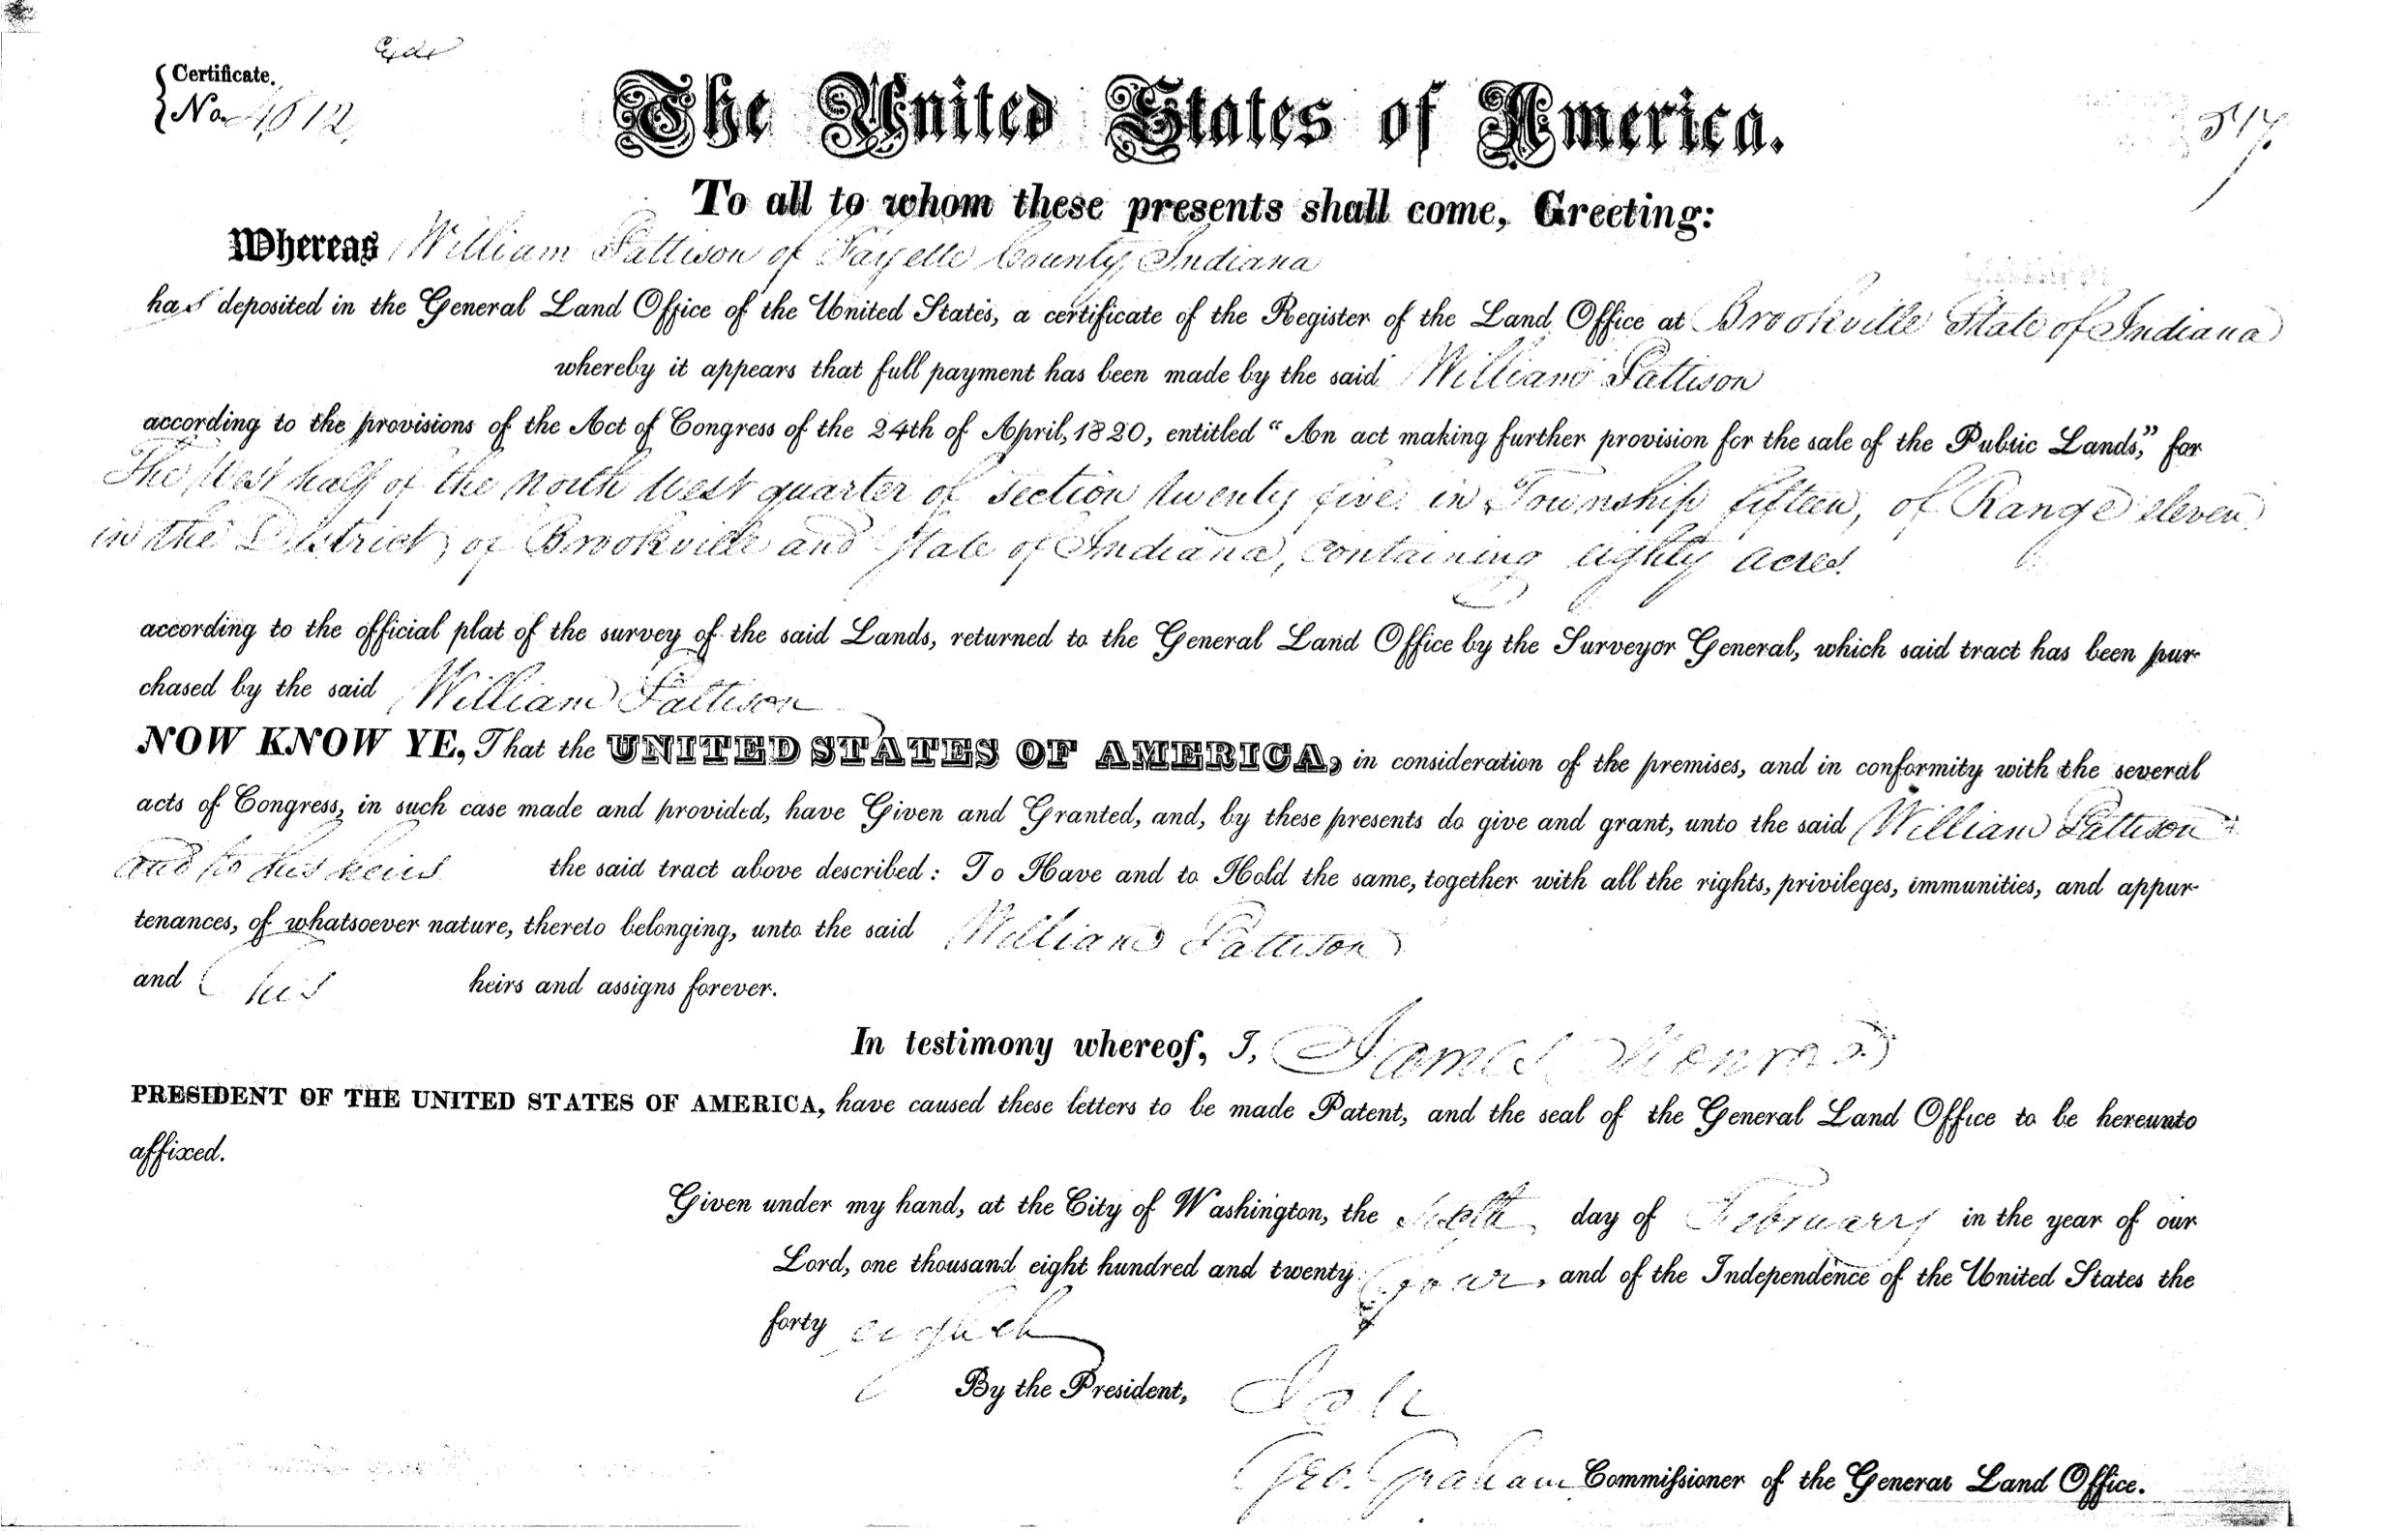 Certificate.
No. 4812
The United States of America.
To all to whom these presents shall come, Greeting:
Whereas William Pattison of Fayette County, Indiana
has deposited in the General Land Office of the United States, a certificate of the Register of the Land Office at Brookville State of Indiana
whereby it appears that full payment has been made by the said William Pattison
according to the provisions of the Act of Congress of the 24th of April, 1820, entitled "An act making further provision for the sale of the Public Lands," for
The West half of the North West quarter of Section twenty five in Township fifteen, of Range eleven,
in the District of Brookville and State of Indiana, containing eighty acres
according to the official plat of the survey of the said Lands, returned to the General Land Office by the Surveyor General, which said tract has been pur-
chased by the said William Pattison
NOW KNOW YE, That the UNITED STATES OF AMERICA, in consideration of the premises, and in conformity with the several
acts of Congress, in such case made and provided, have Given and Granted, and, by these presents do give and grant, unto the said William Pattison
and to his heirs the said tract above described: To Have and to Hold the same, together with all the rights, privileges, immunities, and appur-
tenances, of whatsoever nature, thereto belonging, unto the said William Pattison
and his heirs and assigns forever.
In testimony whereof, I, James Monroe
PRESIDENT OF THE UNITED STATES OF AMERICA, have caused these letters to be made Patent, and the seal of the General Land Office to be hereunto
affixed.
Given under my hand, at the City of Washington, the sixth day of February in the year of our
Lord, one thousand eight hundred and twenty four, and of the Independence of the United States the
forty eighth
By the President,
Geo. Graham Commissioner of the General Land Office.